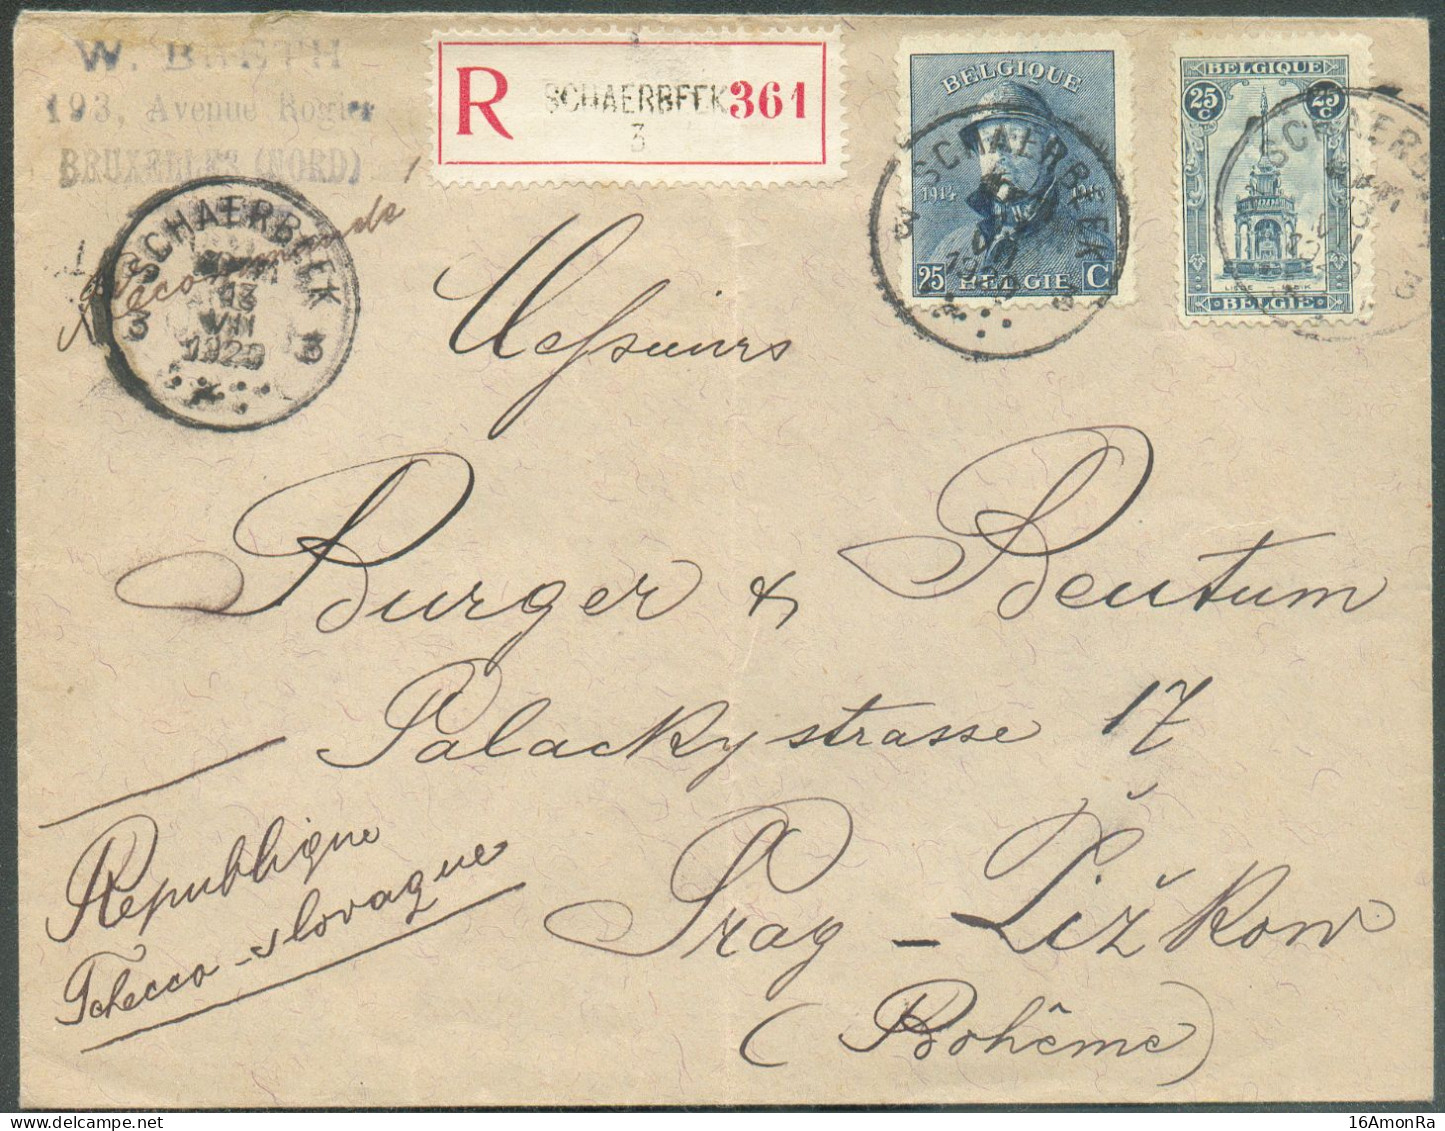 193, Avenue Rogier
BRUXELLES (NORD)
Recommandé
R SCHAERBEEK 361
3
BELGIQUE
1914 1918
25 BELGIE C
BELGIQUE
25 C 25 C
LIEGE LUIK
BELGIE
SCHAERBEEK
13
VII
1920
3 3
SCHAERBEEK
3 3
SCHAERBEEK
13
3
Messieurs
Burger & Beutum
Palackystrasse 17
Prag - Žižkow
(Bohême)
République
Tchecco-slovaque
16AmonRa